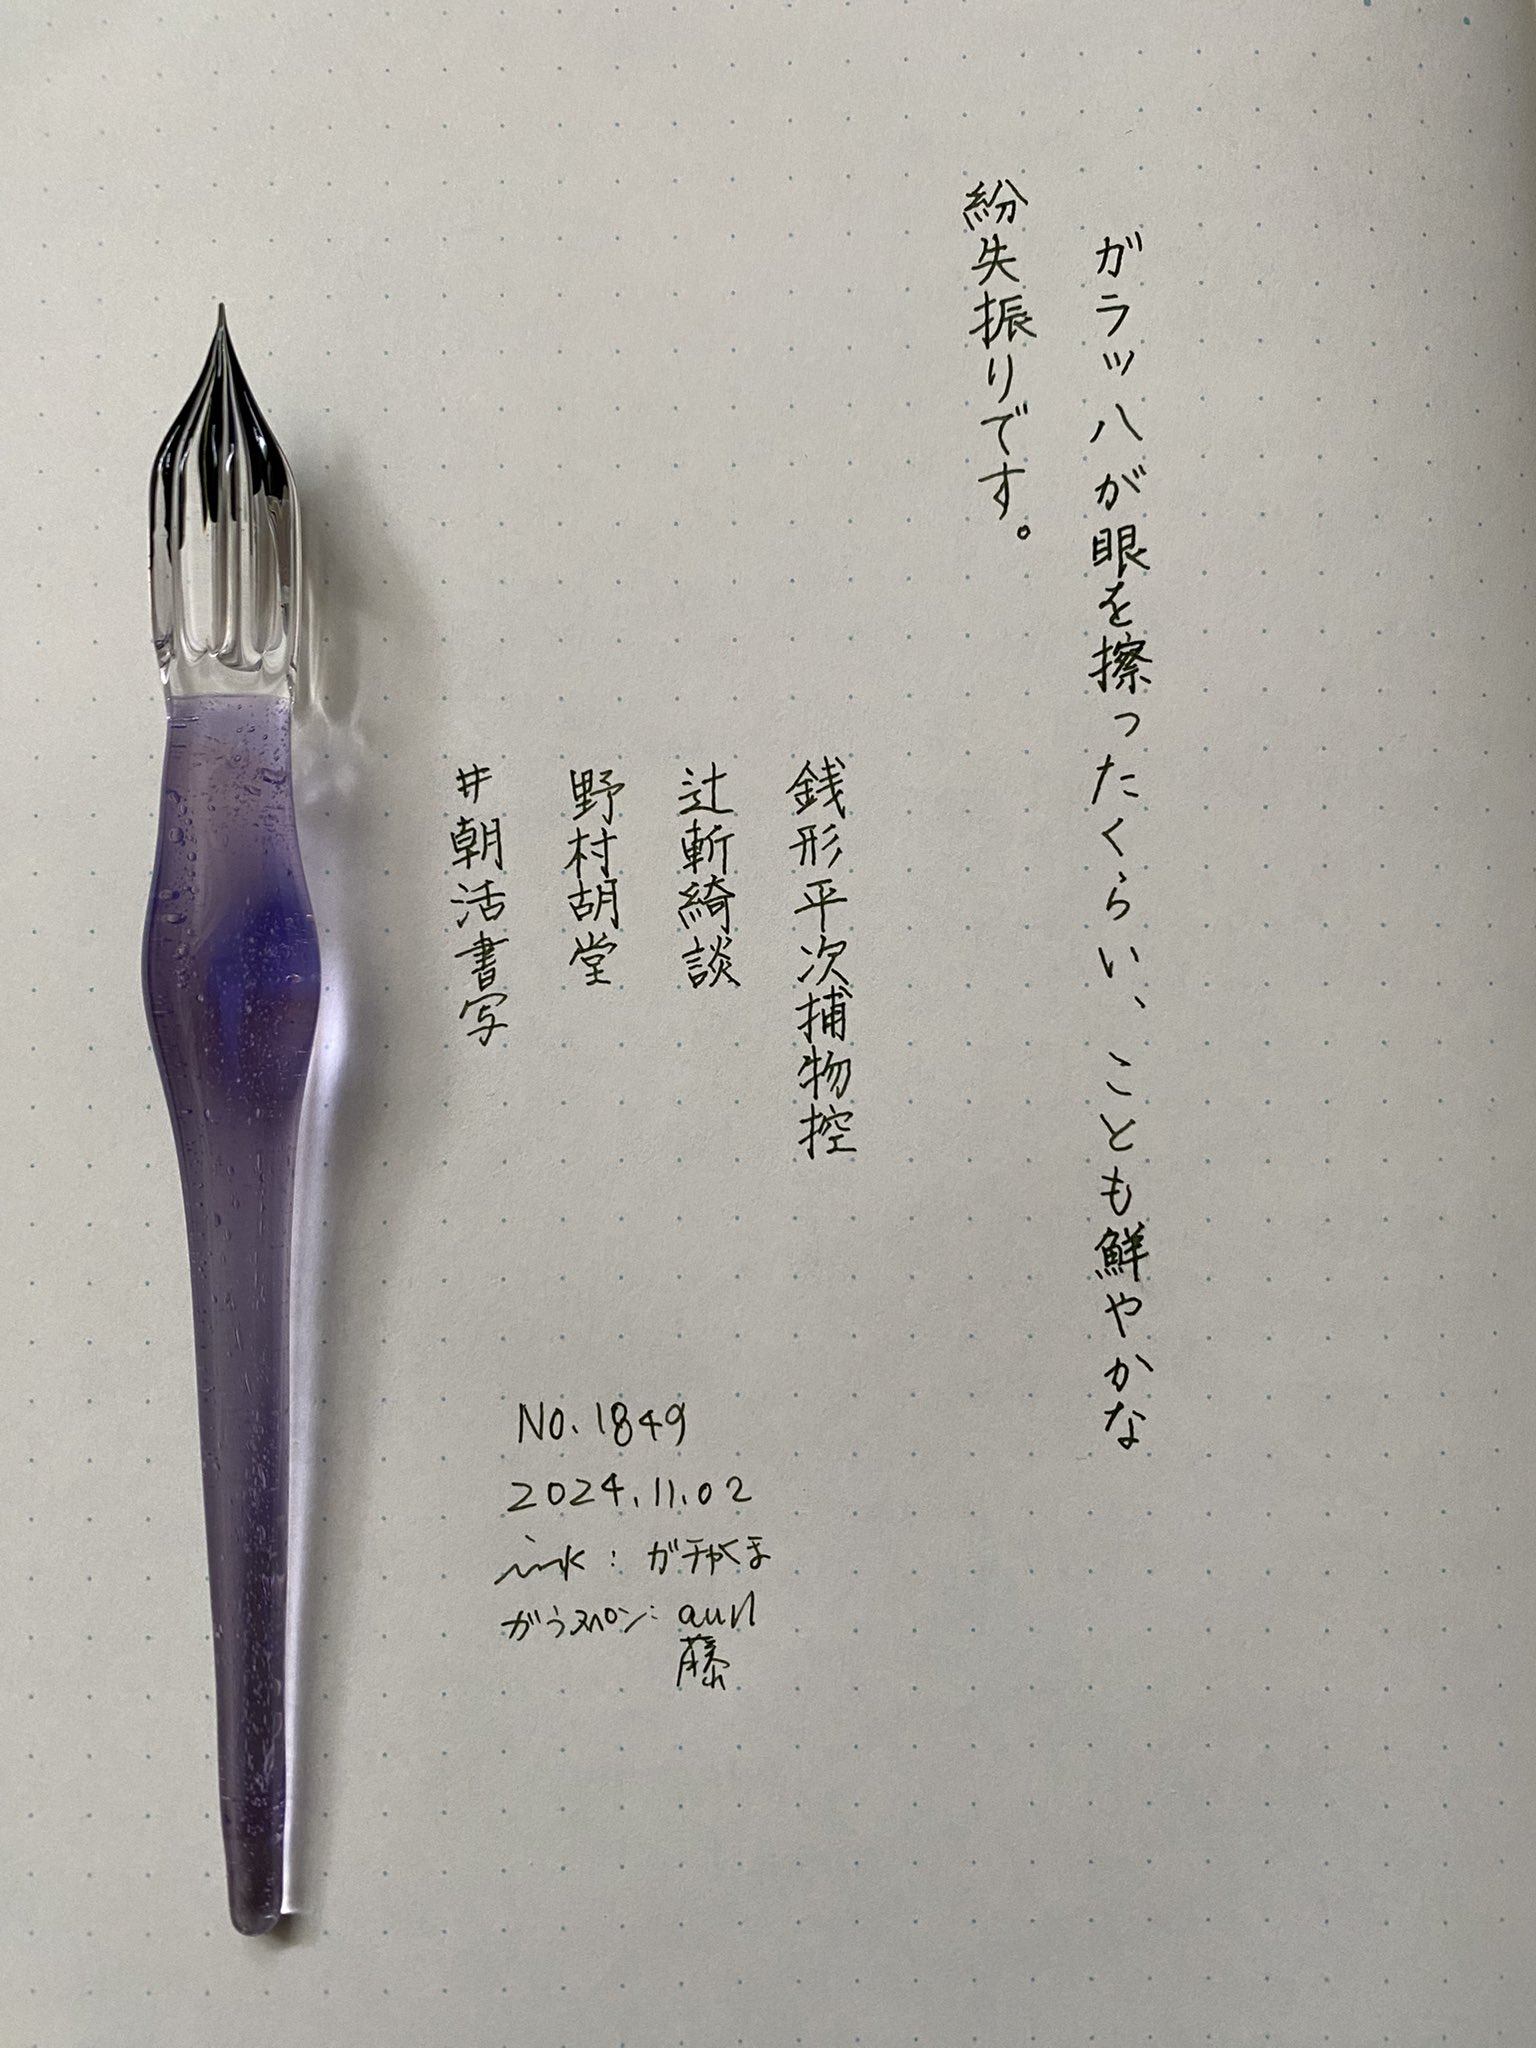 ガラッ八が眼を擦ったくらい、ことも鮮やかな
紛失振りです。
銭形平次捕物控
辻斬綺談
野村胡堂
#朝活書写
No.1849
2024.11.02
ink：ガチャくま
ガラスペン：aun
藤